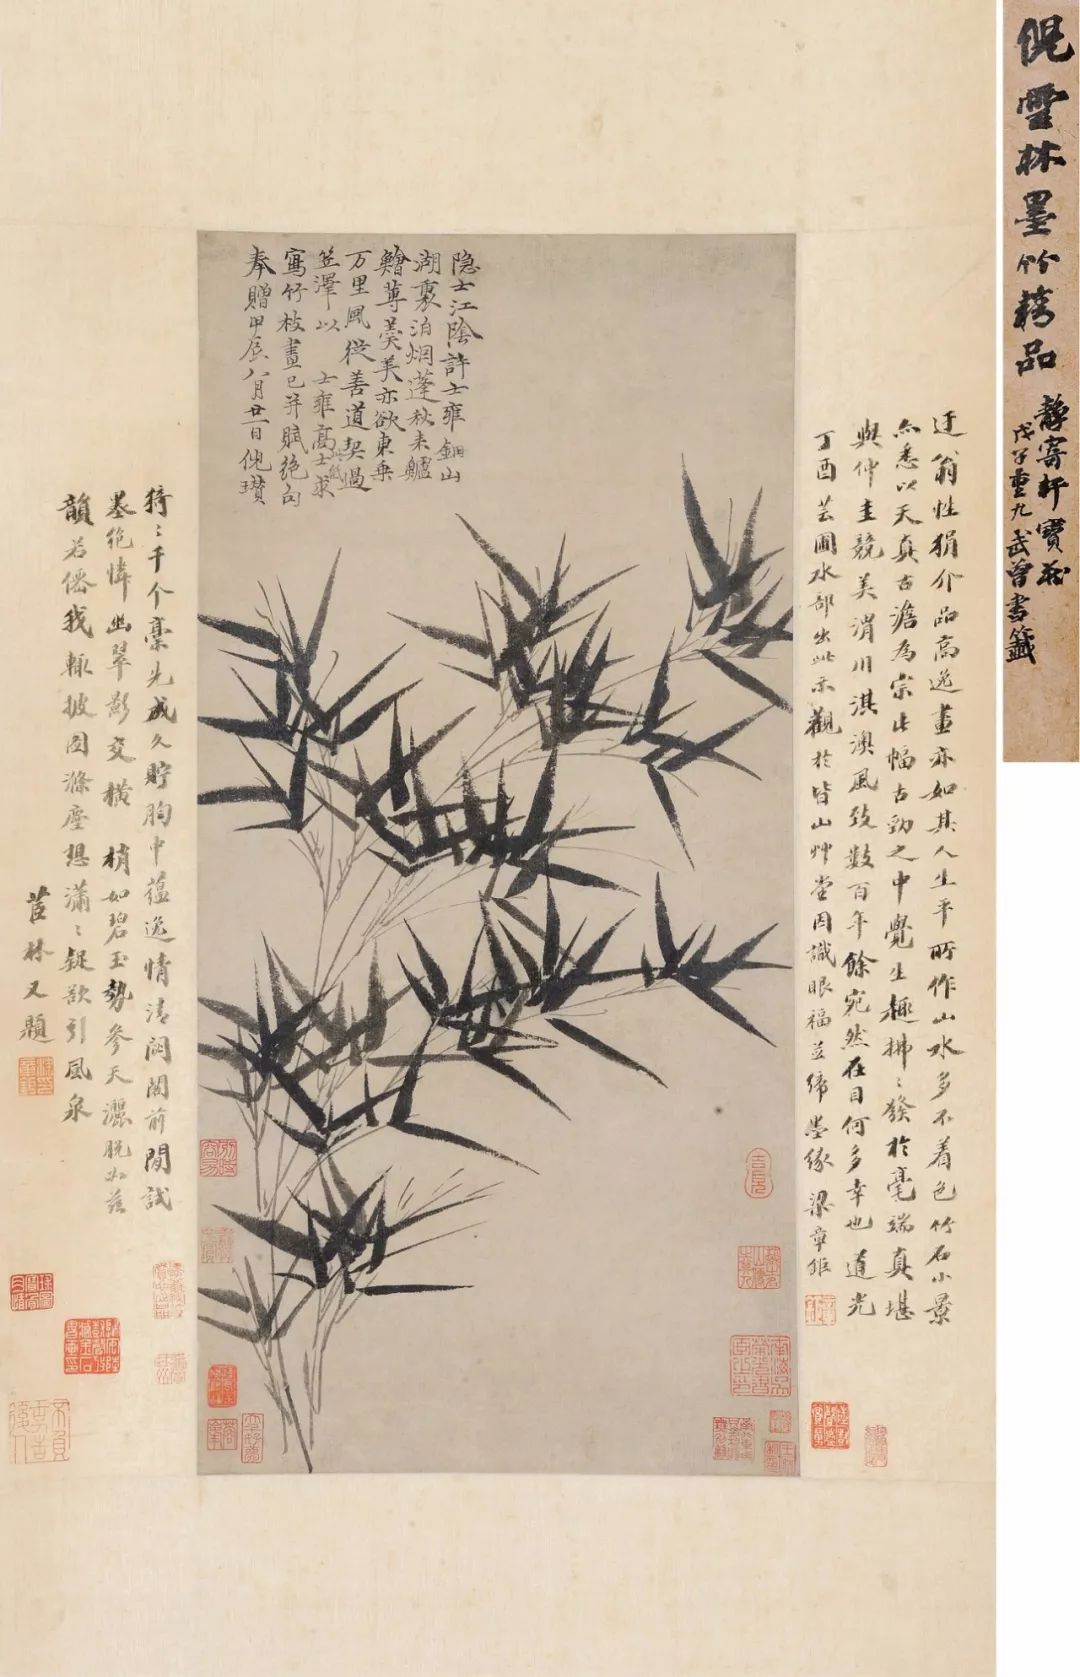 倪雲林墨竹精品
靜寄軒寶藏
戊子重九武曾書籤
迂翁性狷介品高逸畫亦如其人生平所作山水多不着色竹石小景
亦悉以天真古澹為宗此幅古勁之中覺生趣拂〻發於毫端真堪
與仲圭競美渭川淇澳風致數百年餘宛然在目何多幸也道光
丁酉芸圃水部出此示觀於皆山艸堂因識眼福並締墨緣 梁章鉅
隐士江陰許士雍鉏山
湖裏泊烟蓬秋末鱸
鱠蓴羹美亦欲東乗
万里風從善道契過
笠澤以此紙 士雍高士求
寫竹枝畫已并賦絕句
奉贈甲辰八月廿一日倪瓚
猗〻千个藁先成久貯胸中蘊逸情清閟閣前閒試
墨絕憐幽翠影交橫 梢如碧玉勢參天灑脱如茲
韻若僊我輒披圖滌塵想瀟〻疑欲引風泉
茝林又題